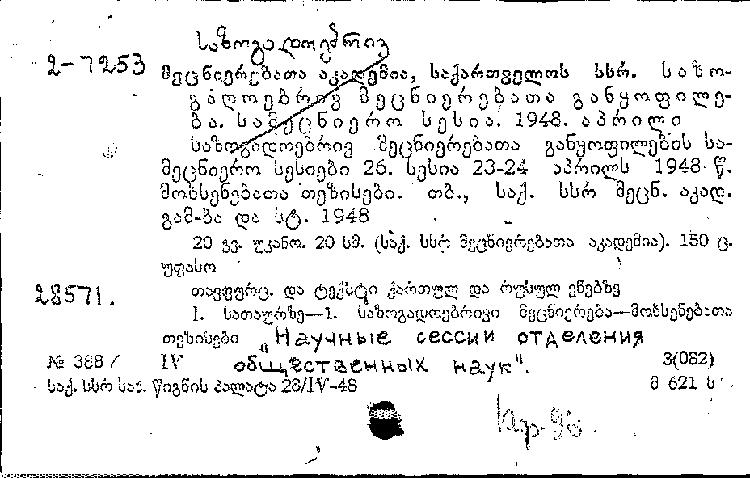 საზოგადოებრივ
2-7253
მეცნიერებათა აკადემია, საქართველოს სსრ. საზო-
გადოებრივ მეცნიერებათა განყოფილე-
ბა. სამეცნიერო სესია. 1948. აპრილი
საზოგადოებრივ მეცნიერებათა განყოფილების სა-
მეცნიერო სესიები 26. სესია 23-24 აპრილს 1948 წ.
მოხსენებათა თეზისები. თბ., საქ. სსრ მეცნ. აკად.
გამ-ბა და სტ. 1948
20 გვ. უკანო. 20 სმ. (საქ. სსრ მეცნიერებათა აკადემია). 150 ც.
უფასო
28571.
თავფურც. და ტექსტი ქართულ და რუსულ ენებზე
1. სათაურზე—1. საზოგადოებრივი მეცნიერება—მოხსენებათა
თეზისები „Научные сессии отделения
общественных наук".
№ 388 / IV 3(082)
საქ. სსრ სახ. წიგნის პალატა 28/IV-48 მ 621 ს